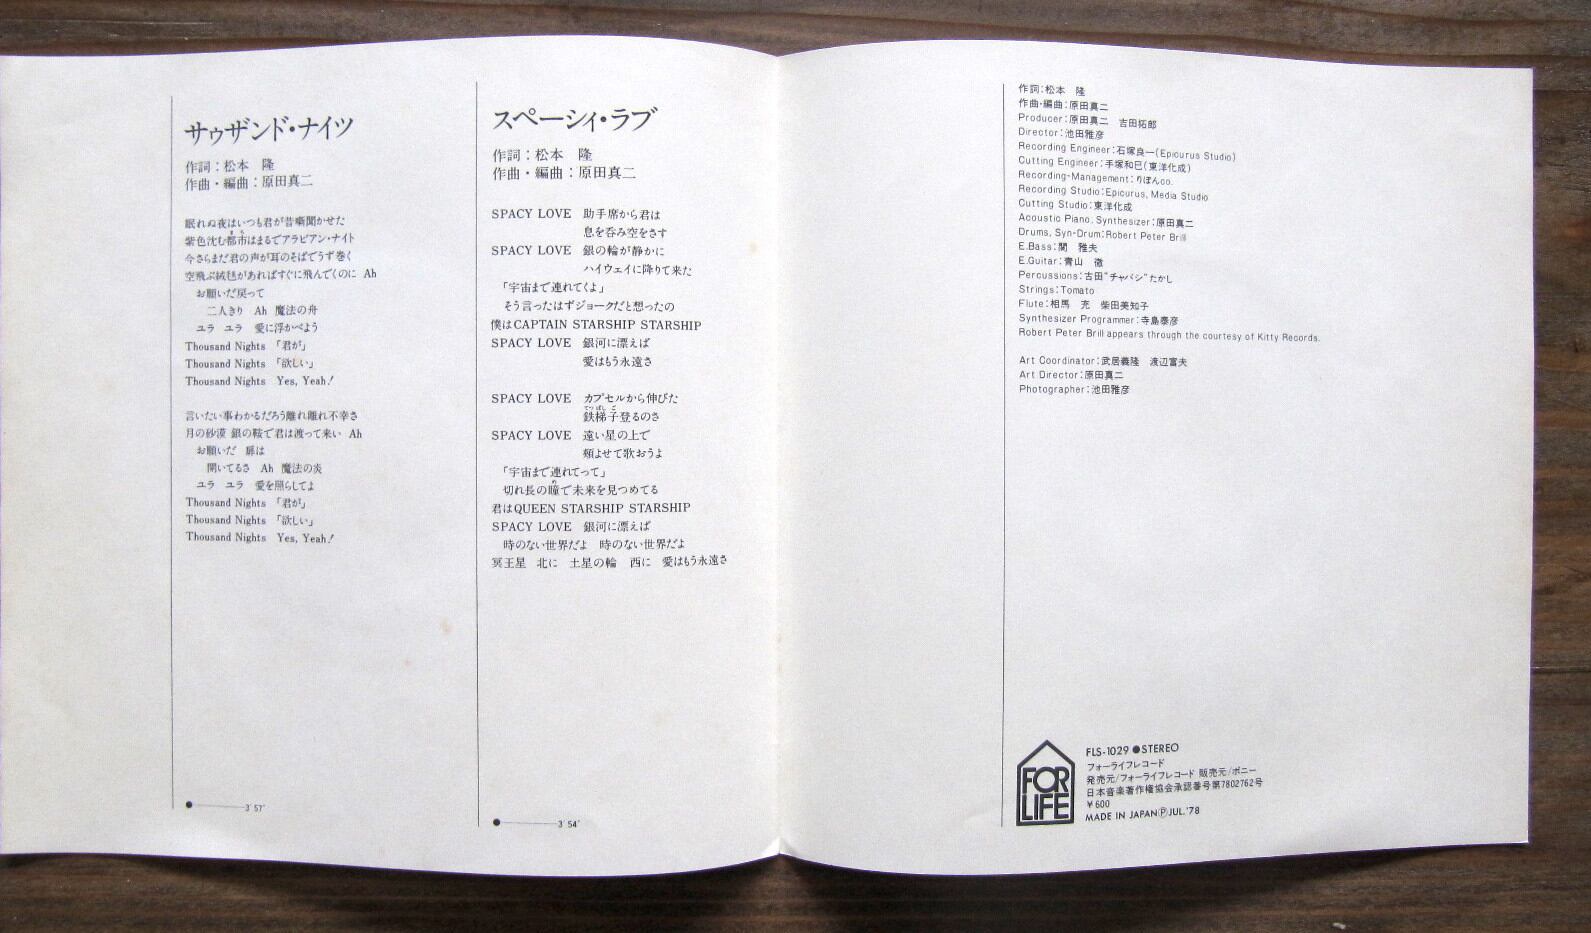 サゥザンド・ナイツ
作詞：松本　隆
作曲・編曲：原田真二
眠れぬ夜はいつも君が昔噺聞かせた
紫色沈む都市はまるでアラビアン・ナイト
今さらまだ君の声が耳のそばでうず巻く
空飛ぶ絨毯があればすぐに飛んでくのに Ah
お願いだ戻って
二人きり　Ah　魔法の舟
ユラ　ユラ　愛に浮かべよう
Thousand Nights 「君が」
Thousand Nights 「欲しい」
Thousand Nights　Yes, Yeah!
言いたい事わかるだろう離れ離れ不幸さ
月の砂漠 銀の鞍で君は渡って来い Ah
お願いだ　扉は
開いてるさ　Ah　魔法の炎
ユラ　ユラ　愛を照らしてよ
Thousand Nights 「君が」
Thousand Nights 「欲しい」
Thousand Nights　Yes, Yeah!
3′57″
スペーシィ・ラブ
作詞：松本　隆
作曲・編曲：原田真二
SPACY LOVE　助手席から君は
息を呑み空をさす
SPACY LOVE　銀の輪が静かに
ハイウェイに降りて来た
「宇宙まで連れてくよ」
そう言ったはずジョークだと想ったの
僕はCAPTAIN STARSHIP STARSHIP
SPACY LOVE　銀河に漂えば
愛はもう永遠さ
SPACY LOVE　カプセルから伸びた
鉄梯子登るのさ
SPACY LOVE　遠い星の上で
頬よせて歌おうよ
「宇宙まで連れてって」
切れ長の瞳で未来を見つめてる
君はQUEEN STARSHIP STARSHIP
SPACY LOVE　銀河に漂えば
時のない世界だよ　時のない世界だよ
冥王星　北に　土星の輪　西に　愛はもう永遠さ
3′54″
作詞：松本　隆
作曲・編曲：原田真二
Producer：原田真二　吉田拓郎
Director：池田雅彦
Recording Engineer：石塚良一(Epicurus Studio)
Cutting Engineer：手塚和巳(東洋化成)
Recording-Management：りぼんco.
Recording Studio：Epicurus, Media Studio
Cutting Studio：東洋化成
Acoustic Piano, Synthesizer：原田真二
Drums, Syn-Drum：Robert Peter Brill
E.Bass：関　雅夫
E.Guitar：青山　徹
Percussions：古田"チャバシ"たかし
Strings：Tomato
Flute：相馬　充　柴田美知子
Synthesizer Programmer：寺島泰彦
Robert Peter Brill appears through the courtesy of Kitty Records.
Art Coordinator：武居義隆　渡辺富夫
Art Director：原田真二
Photographer：池田雅彦
FOR LIFE
FLS-1029●STEREO
フォーライフレコード
発売元/フォーライフレコード 販売元/ポニー
日本音楽著作権協会承認番号第7802762号
￥600
MADE IN JAPANⓅJUL.'78